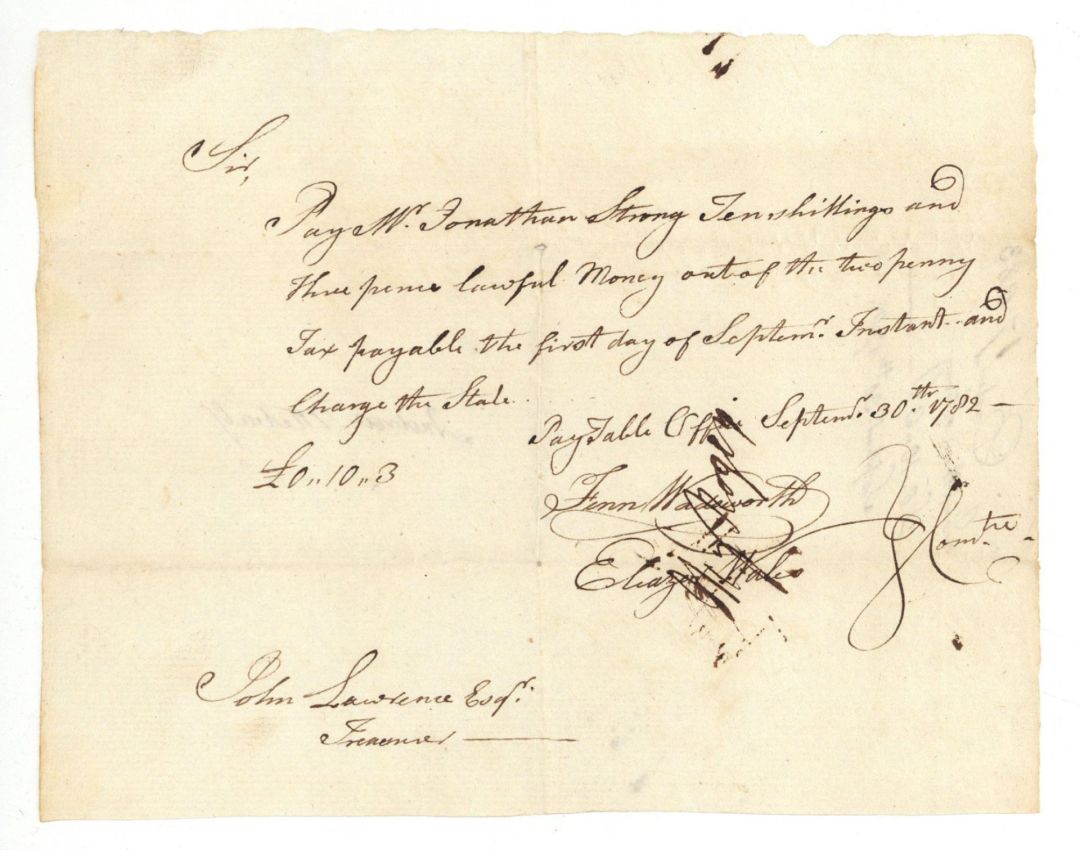 Sir,
Pay Mr. Jonathan Strong Ten shillings and
three pence lawful Money out of the two penny
Tax payable the first day of Septemr. Instant and
Charge the State.
Pay Table Office Septemr. 30.th 1782 —
£0 ,, 10 ,, 3
Fenn Wadsworth
Eleazer Wales
Comtee
John Lawrence Esqr.
Treasurer